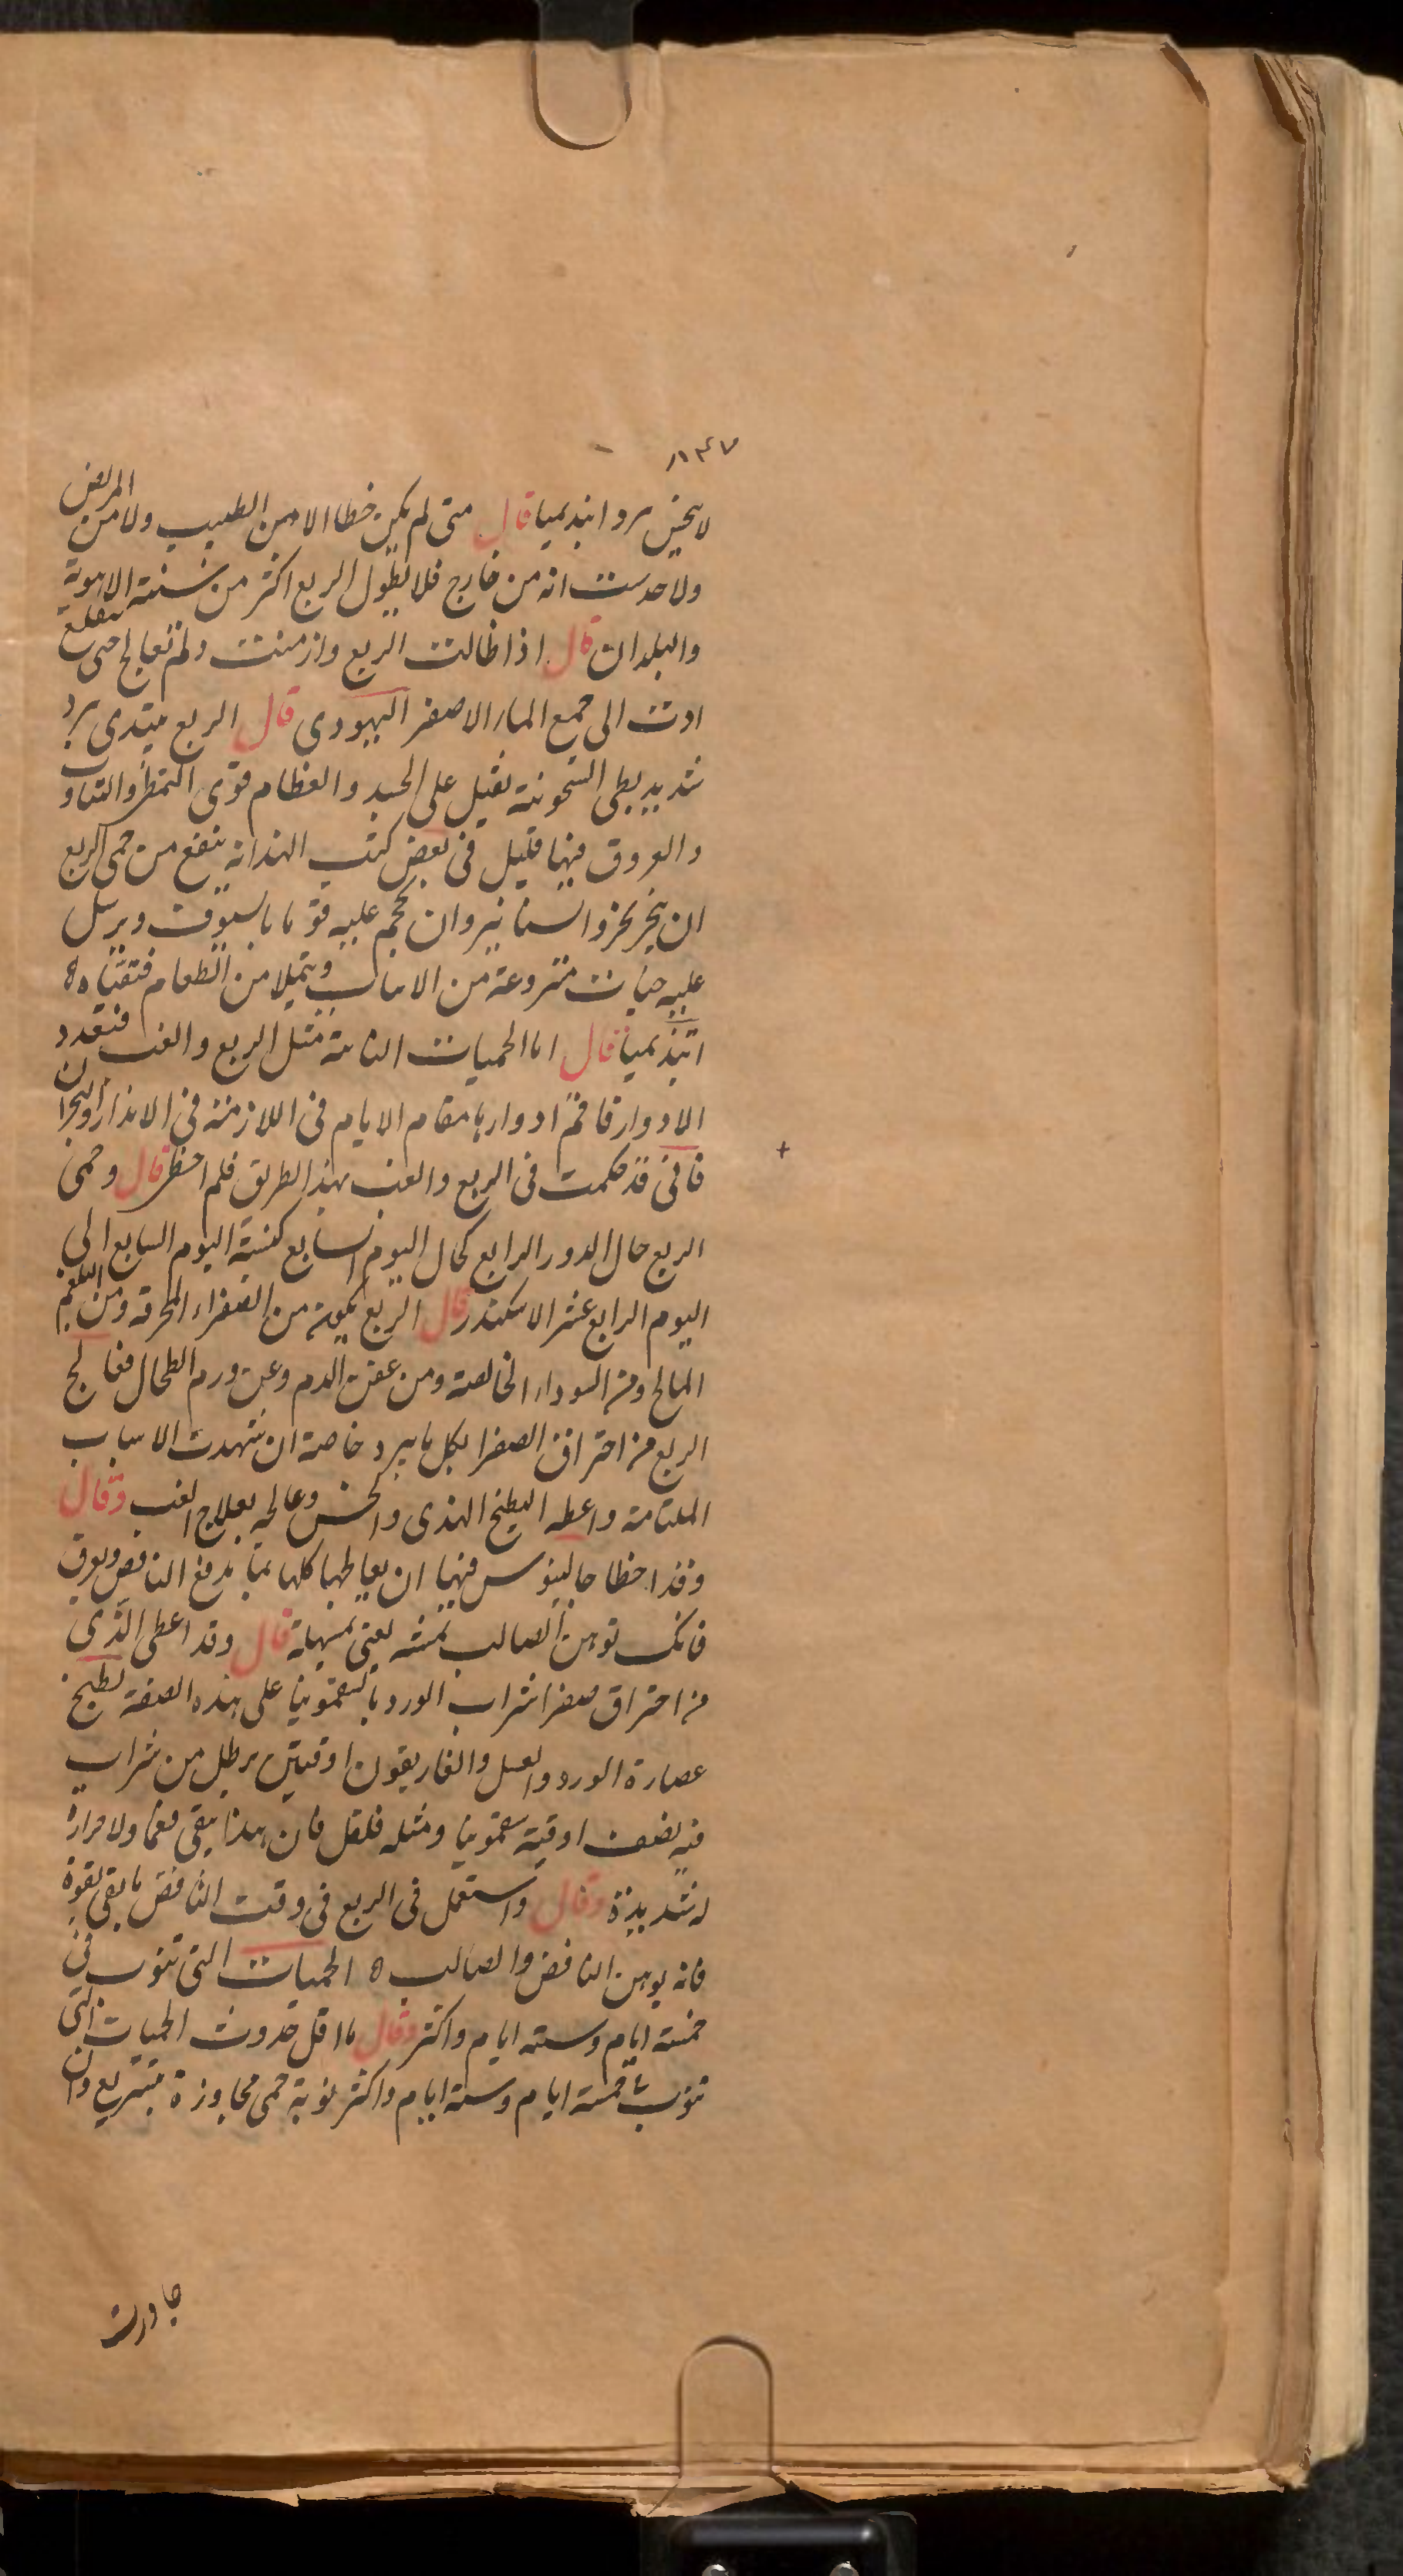 ١١٤٧
لا يحس برد ابيذيميا قال متى لم يكن خطا الا من الطبيب ولا من المريض
ولا حدث انه من خارج فلا يطول الربع اكثر من سنة الاهوية
والبلدان قال اذا طالت الربع وازمنت ولم تعالج حتى تنقلع
ادت الى جمع الماء الاصفر اليهودى قال الربع يبتدى ببرد
شديد بطى السخونة ثقيل على الجسد والعظام قوى التمطى والتثاوب
والعروق فيها قليل فى بعض كتب الهند انه ينفع من حمى الربع
ان يبخر بخرو السنانير وان يهجم عليه قوم بالسيوف ويرسل
عليه حيات منزوعة من الانياب ويتملا من الطعام فتقياه ه
ابيذيميا قال اما الحميات النائبة مثل الربع والغب فتعدد
الادوار فاقم ادوارها مقام الايام فى اللازمة فى الانذار والبحران
فانى قد حكمت فى الربع والغب بهذا الطريق فلم اخط قال وحمى
الربع حال الدور الرابع كحال اليوم السابع كنسبة اليوم السابع الى
اليوم الرابع عشر الاسكندر قال الربع يكون من الصفراء المحرقة ومن البلغم
المالح ومن السوداء الخالصة ومن عفن الدم وعن ورم الطحال فعالج
الربع من احتراق الصفرا بكل ما يبرد خاصة ان شهدت الاسباب
الملتامة واعطه البطيخ الهندى والخس وعالجه بعلاج الغب وقال
وقد اخطا جالينوس فيها ان يعالجها كلها بما يدفع النافض ويعرق
فانك توهن الصالب منه يعنى تسهله قال وقد اعطى الذى
من احتراق صفرا شراب الورد بالسقمونيا على هذه الصفة يطبخ
عصارة الورد والعسل والغاريقون اوقيتين برطل من شراب
فيه نصف اوقية سقمونيا ومثله فلفل فان هذا يقى نعما ولا حرارة
له شديدة وقال واستعمل فى الربع فى وقت النافض ما يقى بقوة
فانه يوهن النافض والصالب ه الحميات التى تنوب فى
خمسة ايام وستة ايام واكثر وقال ما اقل حدوث الحميات التى
تنوب خمسة ايام وستة ايام واكثر نوبة حمى مجاوزة بتربيع وان
جاوزت